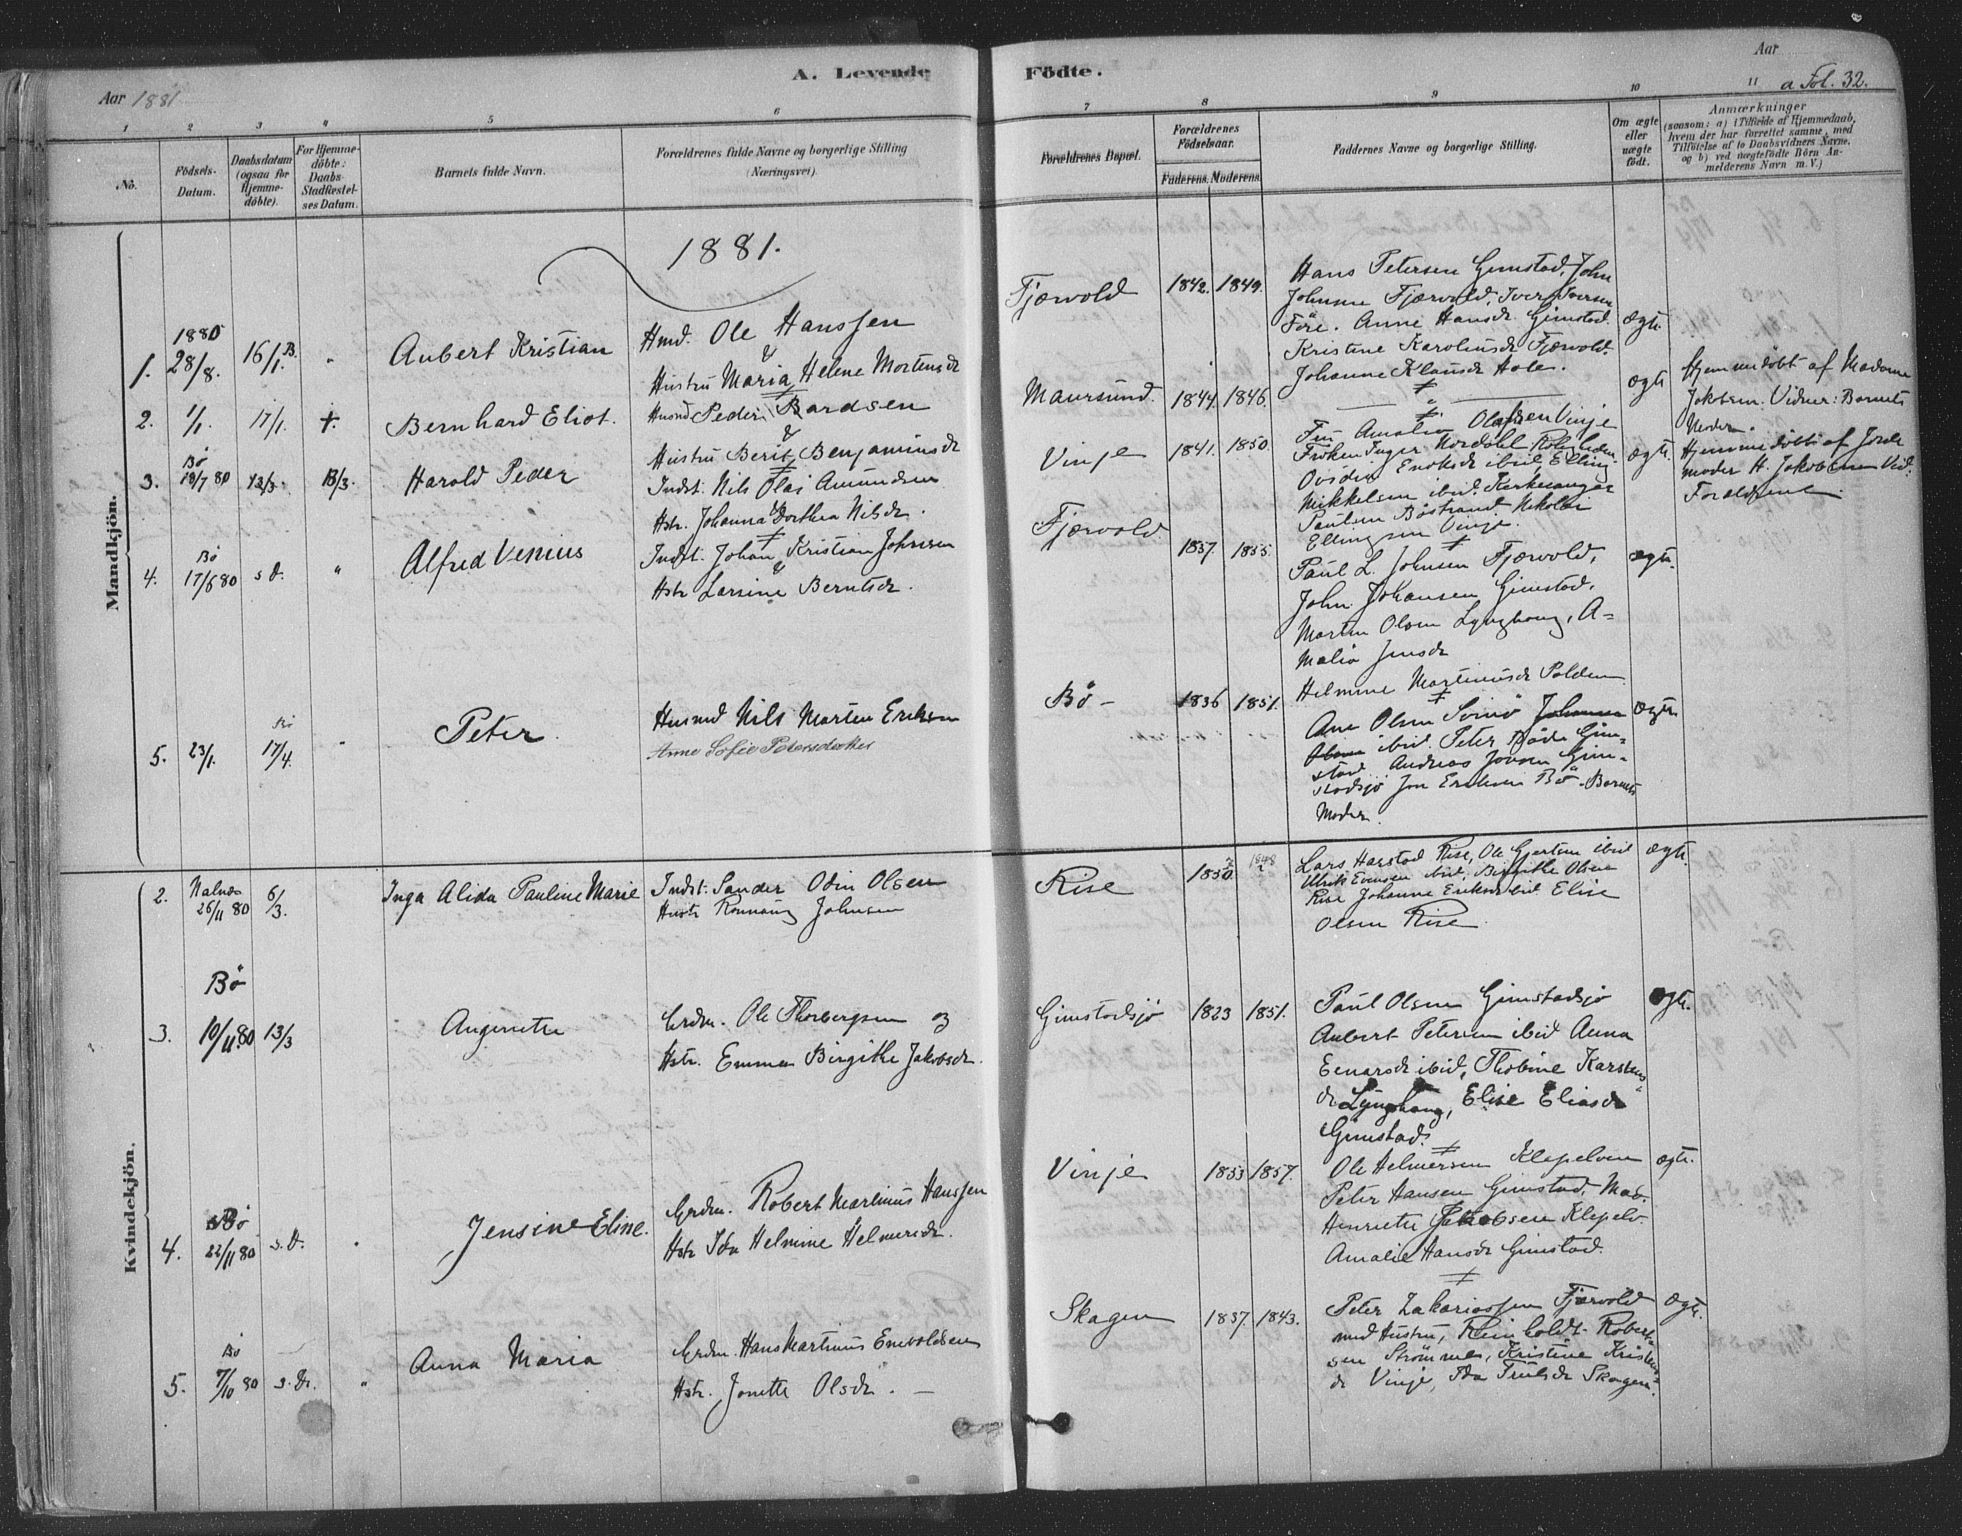 Aar 1881
A. Levende
Födte.
Aar
a Fol. 32.
1 2 3 4 5 6 7 8 9 10 11
No.
Födsels-
Datum.
Daabsdatum
(ogsaa for
Hjemme-
döbte).
For Hjemme-
döbte:
Daabs-
Stadfæstel-
ses Datum.
Barnets fulde Navn.
Forældrenes fulde Navne og borgerlige Stilling
(Næringsvei).
Forældrenes Bopæl.
Forældrenes
Födselsaar.
Faderens. Moderens.
Faddernes Navne og borgerlige Stilling.
Om ægte
eller
uægte
födt.
Anmærkninger
(saasom: a) i Tilfælde af Hjemmedaab,
hvem der har forrettet samme, med
Tilföielse af to Daabsvidners Navne,
og b) ved uægtefödte Börn An-
melderens Navn m. V.)
1881.
Mandkjön.
1. 1880 28/8. 16/1. B. "
Aubert Kristian
Hmd. Ole Hanssen
&
Hustru Maria Helene Mortensdr
Fjærvold 1842. 1849.
Hans Petersen Gimstad, John
Johnsen Fjærvold, Iver Iversen
Före. Anne Hansdr Gimstad.
Kristine Karoliusdr Fjærvold.
Johanne Klausdr Hole.
ægte
2. 1/1. 17/1. +.
Bernhard Eliot.
Husmd Peder Bardsen
&
Hustru Berit Benjaminsdr
Maursund. 1844. 1846.
ægte
Hjemmedöbt af Madame
Jakobsen. Vidner: Barnets
Moder.
3. Bø 18/7 80 13/3. 13/3.
Harold Peder
Indst. Nils Olai Amundsen
Hstr. Johanna Dorthea Nilsdr.
Vinje 1841. 1850.
Fru Amalia Olafsen Vinje
Fröken Inger Nordahl
Enoksdr ibid, Elling
Mikkelsen ibid. Kirkesanger
Paulsen Böstrand Nikolai
Ellingsen Vinje.
ægte.
Hjemmedöbt af Jorde
moder H. Jakobsen Vid:
Forældrene
4. Bø 17/6 80 s. d. "
Alfred Venius
Indst. Johan Kristian Johnsen
&
Hstr Larsine Berntsdr.
Fjærvold 1857. 1855.
Paul L. Johnsen Fjærvold,
John Johansen Gimstad,
Martin Olsen Lynghaug, A=
malia Jensdr
Helmine Martinusdr Polden
ægte.
5. 23/1. Bø 17/4. "
Peter.
Husmd Nils Morten Eriksen
Anne Sofie Petersdatter
Bø - 1836 1851.
Ane Olsen Svinö Johanna
Olsen ibid. Peter Böde Gim-
stad Andreas Jonsen Gim-
stadsjö Jon Eriksen Bø. Barnets
Moder.
ægte
Kvindekjön.
2. Malnes 26/11 80 6/3.
Inga Alida Pauline Marie
Indst: Sander Odin Olsen
Hustr Rönnaug Johnsen
Rise 1850 1848
Lars Harstad Rise, Ole Gjertsen ibid
Ulrik Evensen ibid, Birgithe Olsen
Rise Johanne Eriksdr ibid Elise
Olsen Rise
ægte.
3. Bø 10/11 80 13/3
Angenette
Grdm. Ole Thorbergsen og
Hstr. Emma Birgithe Jakobsdr.
Gimstadsjö 1823 1851.
Paul Olsen Gimstadsjö
Aubert Petersen ibid Anna
Einarsdr ibid, Thobine Karstens
dr Lynghaug, Elise Eliasdr
Gimstad.
ægte.
4. Bø 22/11 80 s. D. "
Jensine Elise.
Grdm. Robert Martinus Hanssen
Hstr Ida Helmine Helmersdr.
Vinje 1853 1857.
Ole Helmersen Klepelven
Peter Hansen Gimstad, Mad.
Henriette Jakobsen Klepelv.
Amalie Hansdr Gimstad.
ægte.
5. Bø 7/10 80 s. D. "
Anna Maria
Grdm. Hans Martinus Enevoldsen
Hstr. Jonette Olsdr. -
Skagen 1837. 1843.
Peter Zakariassen Fjærvold
med Hustru, Reinholdt Robert-
sen Strömme, Kristine Kristens
dr Vinje, Ida Trulsdr Skagen.
ægte.